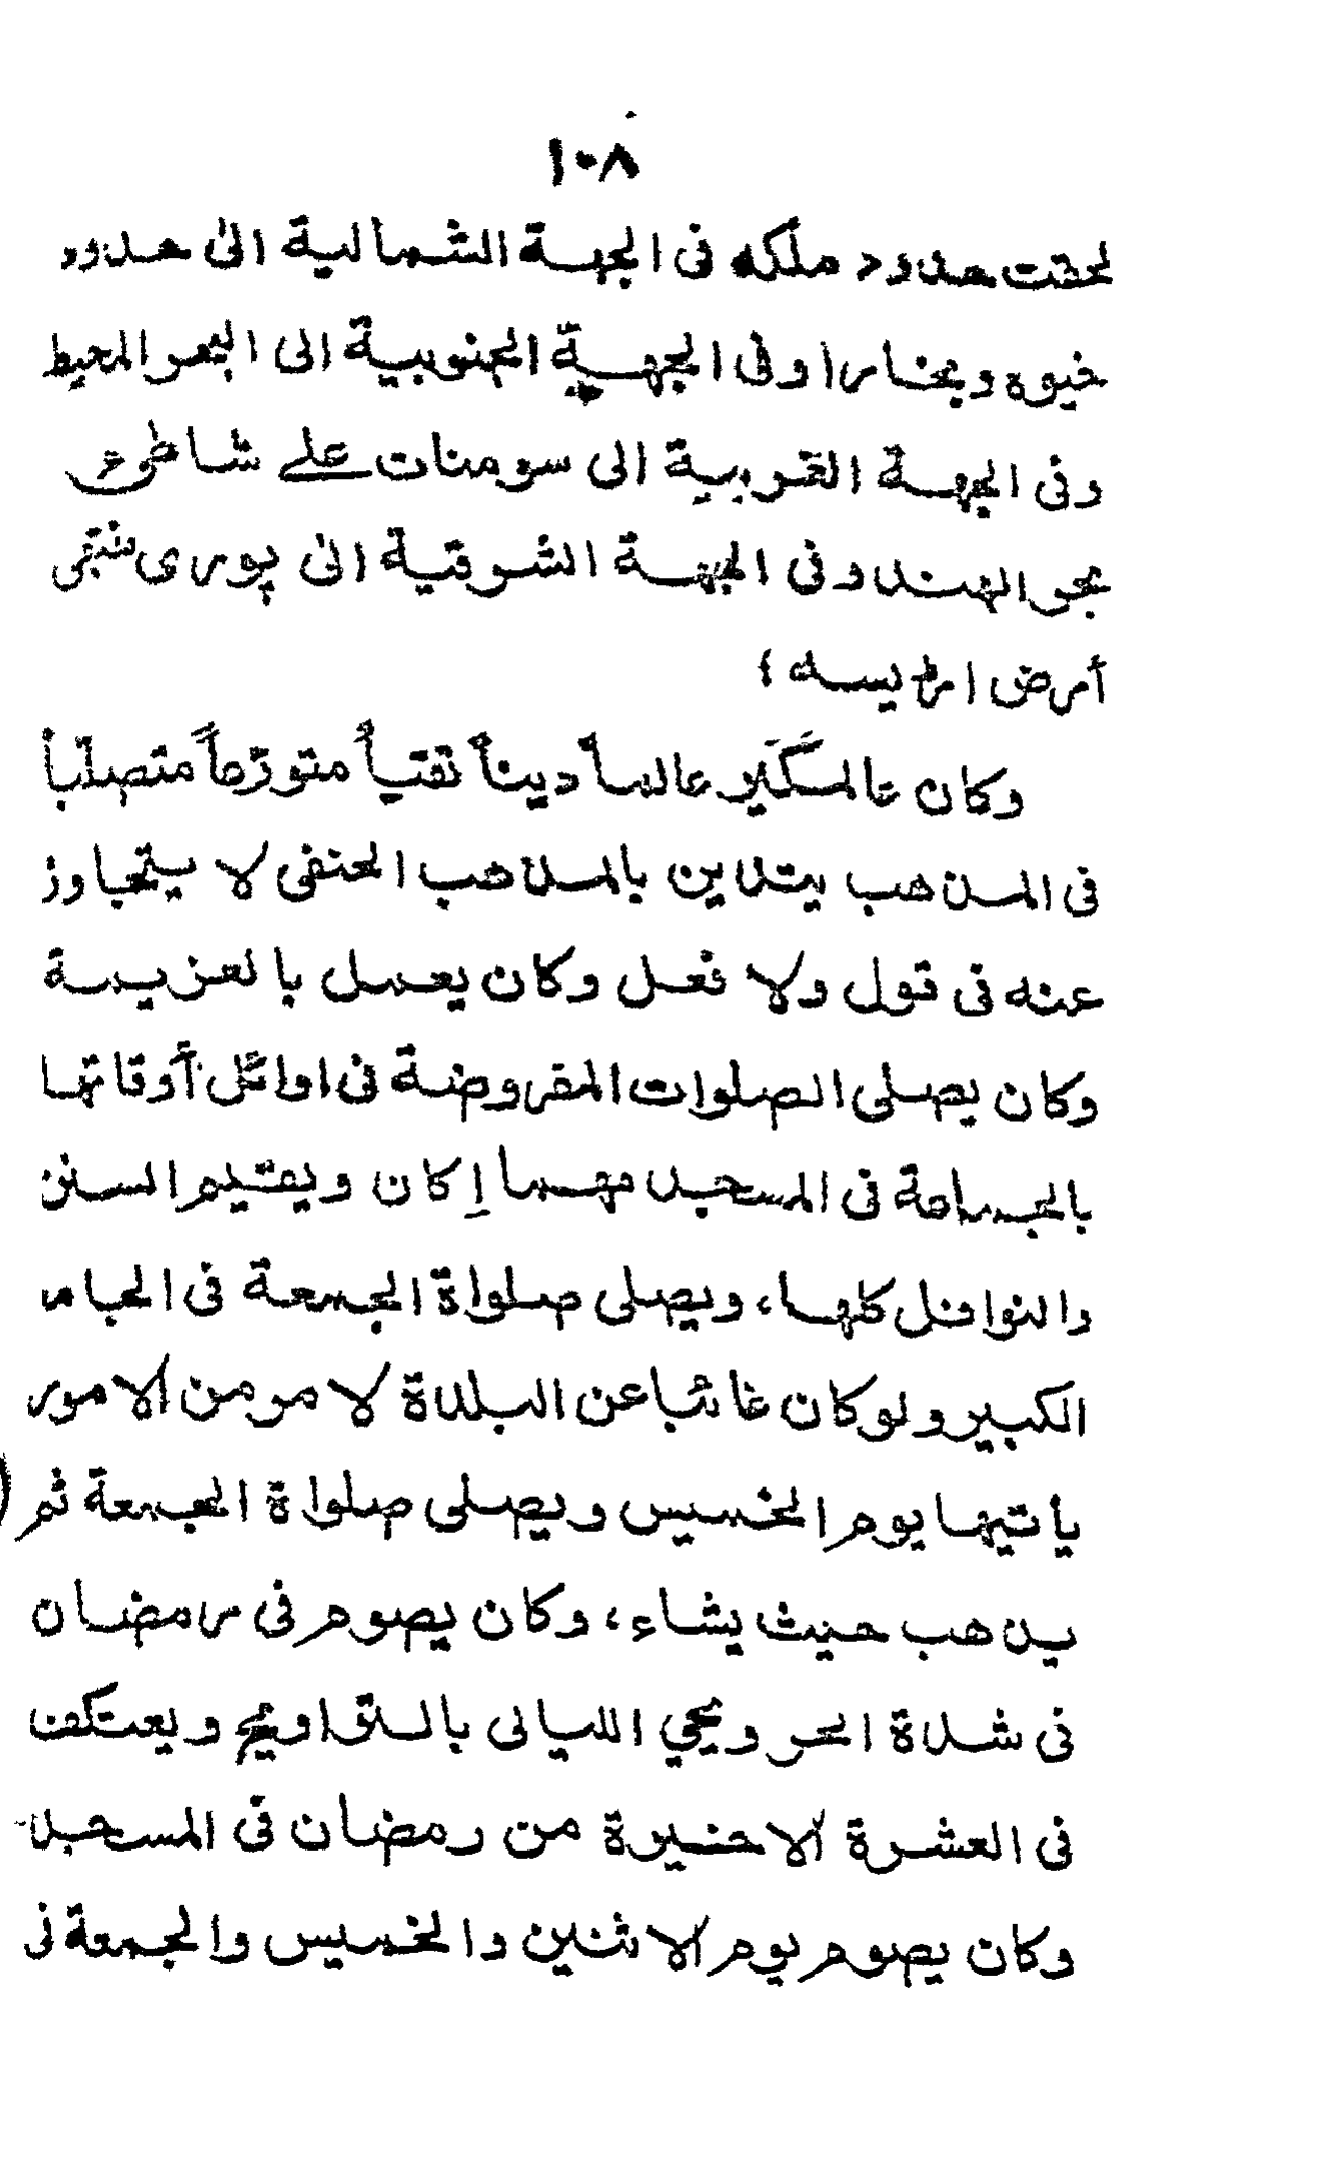 ١٠٨
لحقت حدود ملكه فى الجهة الشمالية الى حدود
خيوه وبخارا وفى الجهة الجنوبية الى البحر المحيط
وفى الجهة الغربية الى سومنات علے شاطئ
بحر الهند وفى الجهة الشرقية الى پورى منتهى
أرض اڑيسه ؛
وكان عالمگير عالماً ديناً تقتياً متورّعاً متصلّباً
فى المذهب يتدين بالمذهب الحنفى لا يتجاوز
عنه فى قول ولا فعل وكان يعمل بالعزيمة
وكان يصلى الصلوات المفروضة فى اوائل أوقاتها
بالجماعة فى المسجد مهما إكان ويقيم السنن
والنوافل كلها، ويصلى صلواة الجمعة فى الجامع
الكبير ولو كان غائبا عن البلدة لامر من الامور
يأتيها يوم الخميس ويصلى صلواة الجمعة ثم
يذهب حيث يشاء، وكان يصوم فى رمضان
فى شدة الحر ويحيي الليالى بالتراويح ويعتكف
فى العشرة الاخيرة من رمضان فى المسجد
وكان يصوم يوم الاثنين والخميس والجمعة فى